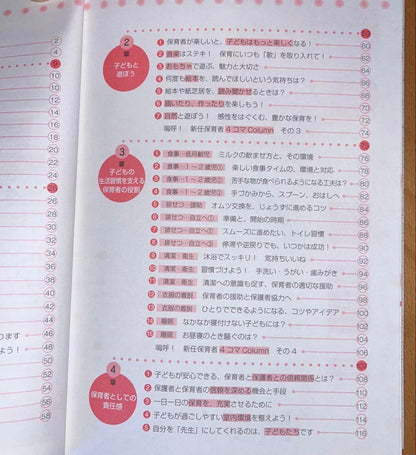 2
4
8
10
10
12
14
16
18
20
22
24
26
28
30
32
34
36
38
40
42
44
46
48
50
52
54
56
58
ります
よう！
2
章
子どもと
遊ぼう
59
1 保育者が楽しいと、子どもはもっと楽しくなる！ 60
2 音楽はステキ！ 保育にいつも「歌」を取り入れて！ 62
3 おもちゃで遊ぶ、魅力と大切さ 64
4 何度も絵本を、読んでほしいという気持ちは？ 66
5 絵本や紙芝居を、読み聞かせるときは？ 68
6 描いたり、作ったりを楽しもう！ 70
7 自然と遊ぼう！ 感性をはぐくむ、豊かな保育を！ 72
嗚呼！ 新任保育者 4コマ Column その3 74
3
章
子どもの
生活習慣を支える
保育者の役割
75
1 食事―低月齢児 ミルクの飲ませ方と、その環境 76
2 食事―1〜2歳児① 楽しい食事タイムの、環境と対応 78
3 食事―1〜2歳児② 苦手な物が食べられるようになる工夫は？ 80
4 食事―1〜2歳児③ 手づかみから、スプーン、おはしへ 82
5 排せつ―援助 オムツ交換を、じょうずに進めるコツ 84
6 排せつ―自立へ① 準備と、開始の時期 86
7 排せつ―自立へ② スムーズに進めたい、トイレ習慣 88
8 排せつ―自立へ③ 停滞や逆戻りでも、いつかは成功！ 90
9 清潔・衛生 沐浴でスッキリ！ 気持ちいいね 92
10 清潔・衛生 習慣づけよう！ 手洗い・うがい・歯みがき 94
11 清潔・衛生 清潔への意識も促す、保育者の適切な援助 96
12 衣服の着脱 保育者の援助と保護者協力へ 98
13 衣服の着脱 ひとりでできるようになる、コツやアイデア 100
14 睡眠 なかなか寝付けない子どもには？ 102
15 睡眠 お昼寝のとき騒ぐのは？ 104
嗚呼！ 新任保育者 4コマ Column その4 106
4
章
保育者としての
責任感
107
1 子どもが安心できる、保育者と保護者との信頼関係とは？ 108
2 保護者と保育者の信頼を深める機会と手段 110
3 一日一日の保育を、充実させるために 112
4 子どもが過ごしやすい室内環境を整えよう！ 114
5 自分を「先生」にしてくれるのは、子どもたちです 116